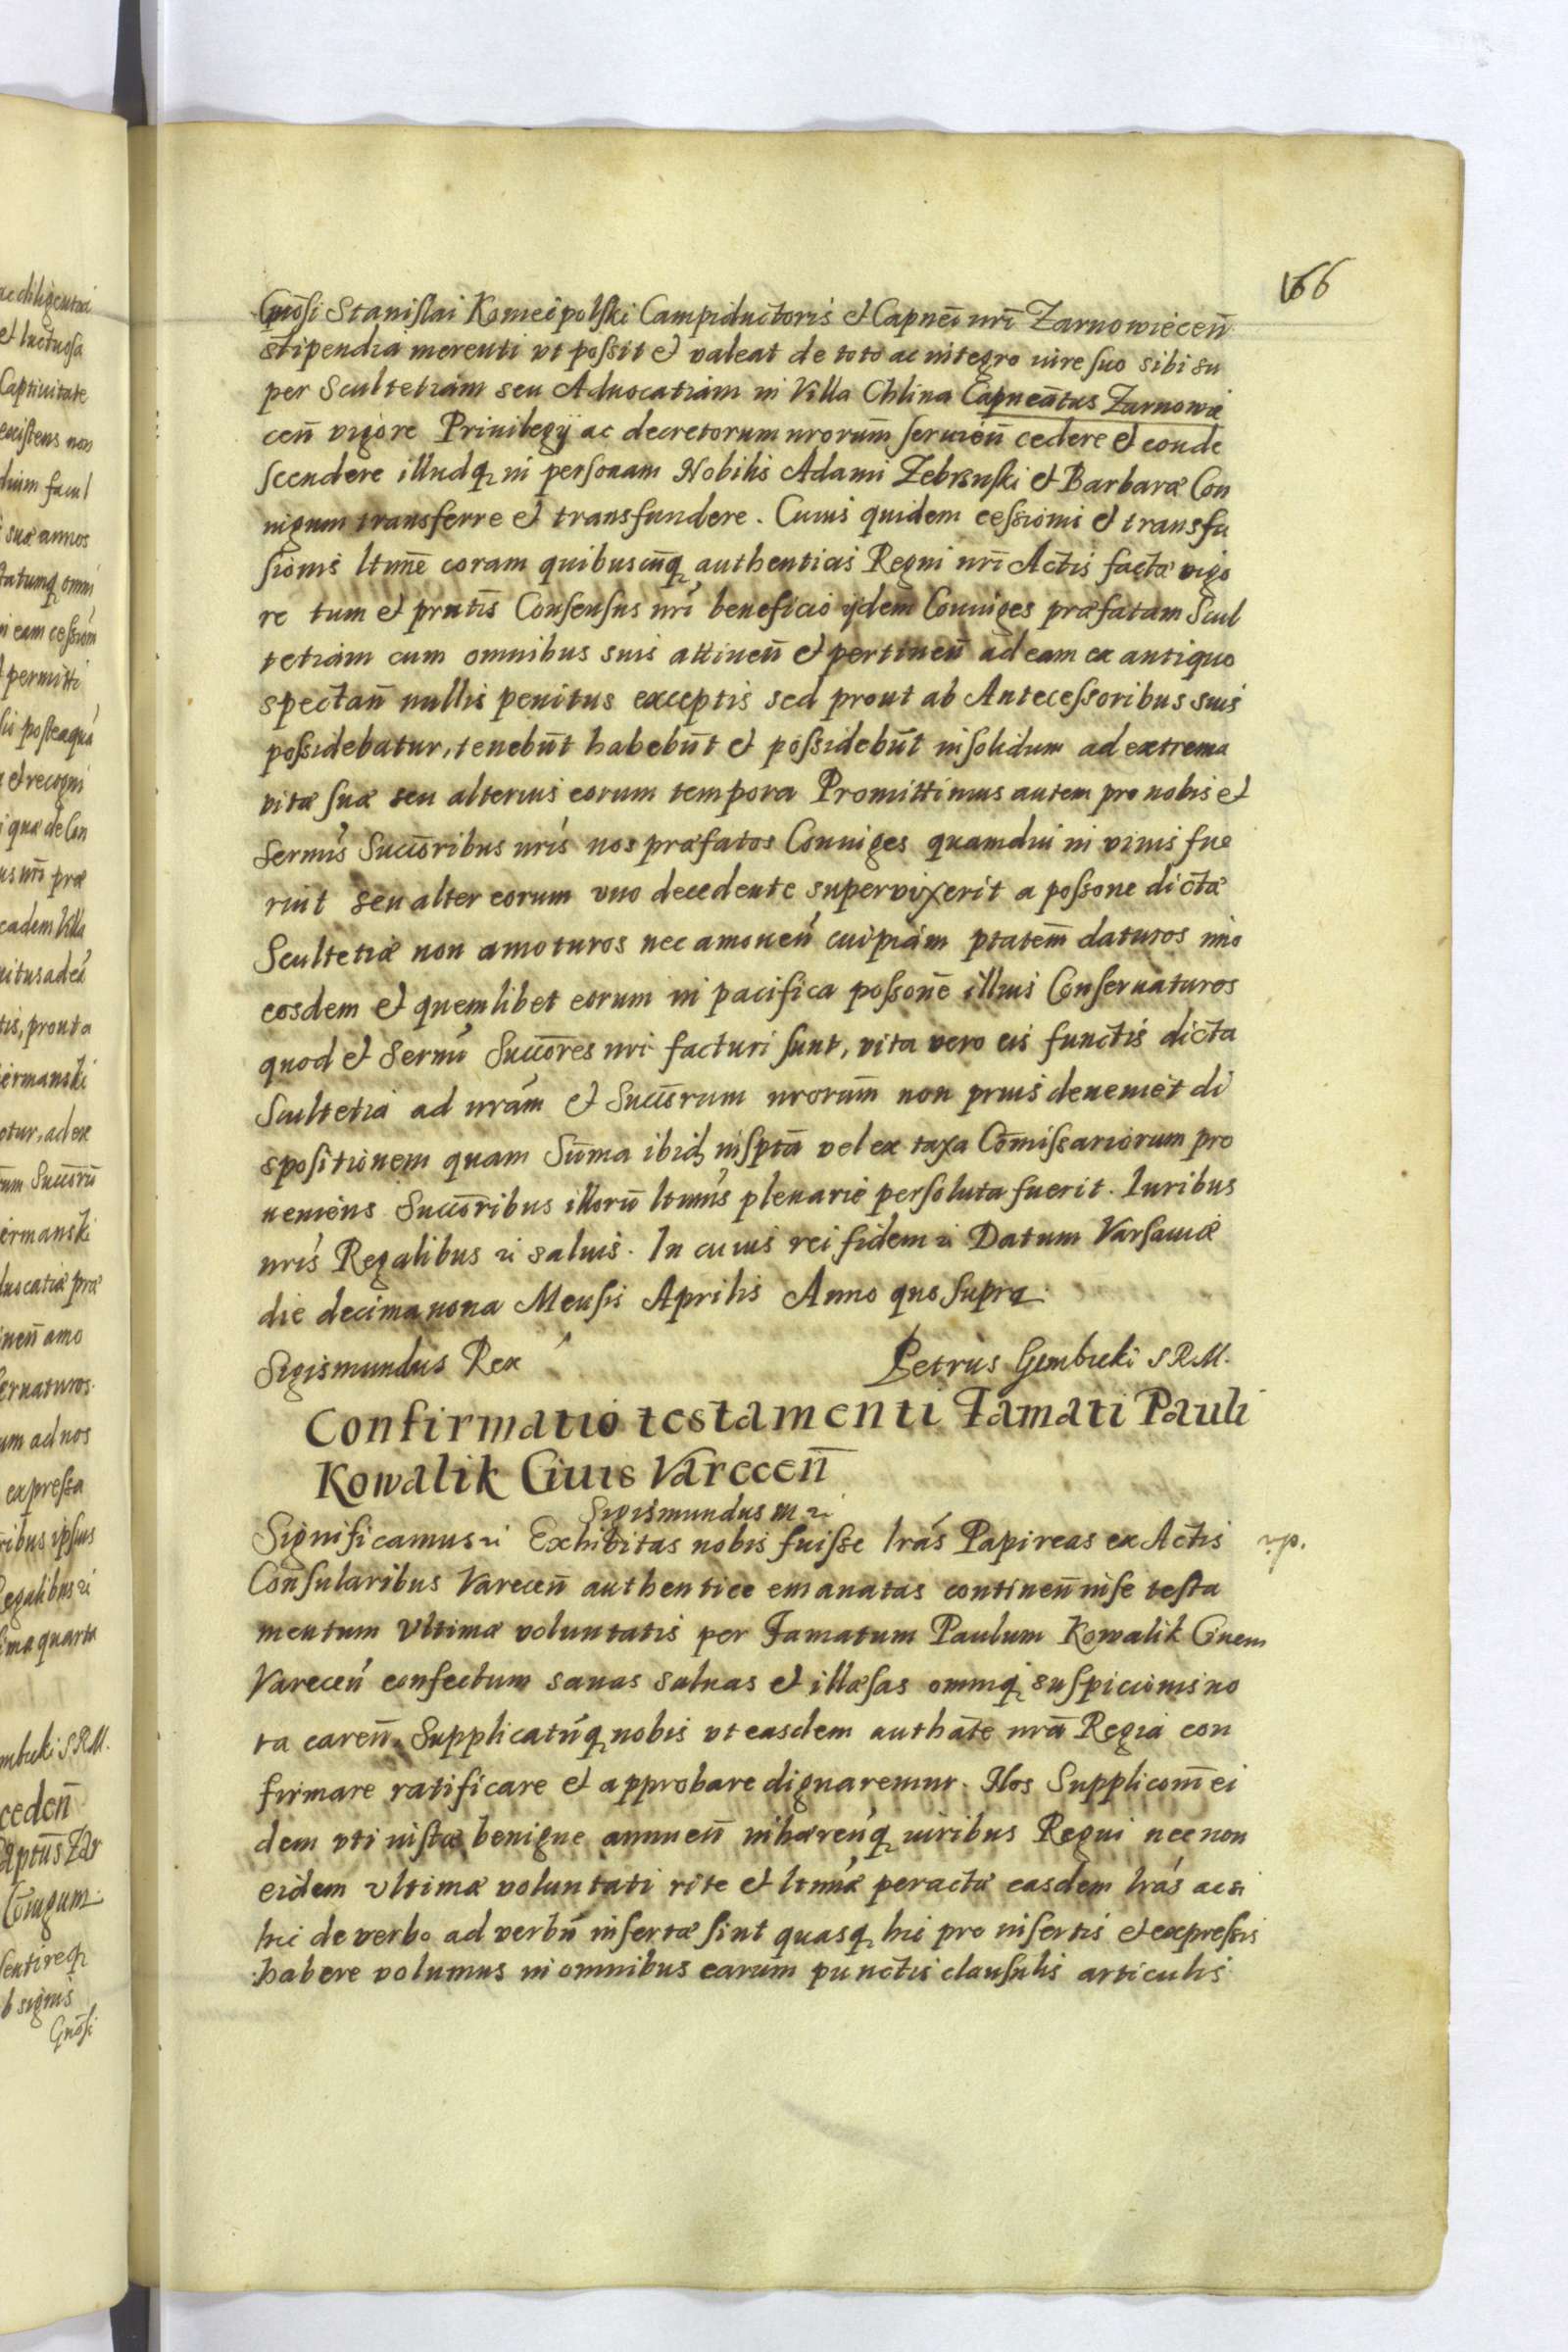 166
Gnosi Stanislai Koniecpolski Campiductoris et Capnei nri Zarnowiecen̄
stipendia merenti vt possit et valeat de toto ac integro iure suo sibi su
per Scultetiam seu Aduocatiam in Villa Chlina Capneātus Zarnowie
cen̄ vigore Priuilegÿ ac decretorum nrorum̄ seruien̄ cedere et conde
scendere illudq in personam Nobilis Adami Zebrzuski et Barbaræ Con
iugum transferre et transfundere. Cuius quidem cessionis et transfu
sionis ltme coram quibuscuq authenticis Regni nri Actis factæ vigo
re tum et prntis Consensus nri beneficio ijdem Coniuges præfatam Scul
tetiam cum omnibus suis attinen̄ et pertinen̄ ad eam ex antiquo
spectan̄ nullis penitus exceptis sed prout ab Antecessoribus suis
possidebatur, tenebūt habebūt et possidebūt insolidum ad extrema
vitæ suæ seu alterius eorum tempora Promittimus autem pro nobis et
Sermis Succoribus nris nos præfatos Coniuges quamdiu in viuis fue
rint seu alter eorum vno decedente supervixerit a possone dictæ
Scultetiæ non amoturos nec amouen̄ cuipiam ptatem̄ daturos imo
eosdem et quemlibet eorum in pacifica possone illius Conseruaturos
quod et Sermi Succores nri facturi sunt, vita vero eis functis dicta
Scultetia ad nram et Succorum nrorum̄ non prius deueniet di
spositionem quam Sūma ibid inspta vel ex taxa Cōmissariorum pro
ueniens Succoribus illorū ltimis plenarie persoluta fuerit. Iuribus
nris Regalibus zc saluis. In cuius rei fidem zc Datum Varsauiæ
die decima nona Mensis Aprilis Anno quo supra.
Sigismundus Rex Petrus Gembicki S R M.
Confirmatio testamenti Famati Pauli
Kowalik Ciuis Varecen̄
Sigismundus III zc
Significamus zc Exhibitas nobis fuisse lras Papireas ex Actis v.p.
Consularibus Varecen̄ authentice emanatas continen̄ in se testa
mentum Vltimæ voluntatis per Famatum Paulum Kowalik Ciuem
Varecen̄ confectum sanas saluas et illæsas omniq suspicionis no
ta caren̄. Supplicatūq nobis vt easdem authāte nrā Regia con
firmare ratificare et approbare dignaremur. Nos Supplicom̄ ei
dem vti iustæ benigne annuen̄ inhæren̄q iuribus Regni nec non
eidem vltimæ voluntati rite et ltimæ peractæ easdem lras ac si
hic de verbo ad verbū insertæ sint quasq hic pro insertis et expressis
habere volumus in omnibus earum punctis clausulis articulis